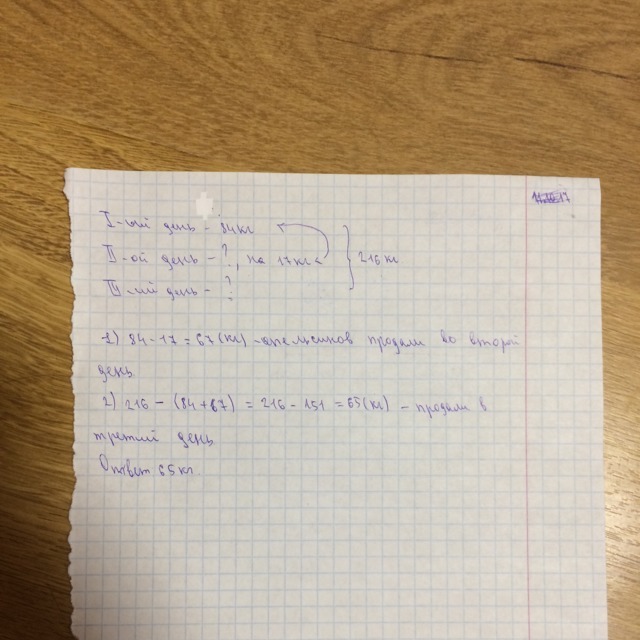 I-ый день - 84кг
II-ой день - ?, на 17кг<
III-ий день - ?
216 кг
1) 84 - 17 = 67(кг) - апельсинов продали во второй
день
2) 216 - (84+67) = 216 - 151 = 65(кг) - продали в
третий день
Ответ 65кг.